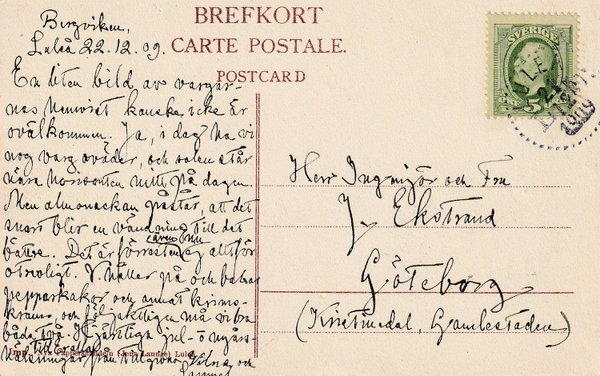 BREFKORT
CARTE POSTALE.
POSTCARD
SVERIGE
5
1909
Bergviken,
Luleå 22.12.09.
En liten bild av vargar-
nas hemvist kanske icke är
ovälkommen. Ja, i dag ha vi
nog varg oväder, och solen står
nära horisonten mitt på dagen.
Men almanackan påstår, att det
snart blir en vändning till det
bättre. Det är förresten även nu
ej alltför
otrevligt. Vi håller på och bakar
pepparkakor och annat krims-
krams, och följaktligen må vi bra
båda två. Hjärtliga jul- o nyårs-
hälsningar till Er alla
från tillgivna
och
Herr Ingenjör och Fru
J. Ekstrand
Göteborg
(Kristinedal, Gamlestaden)
Luleå